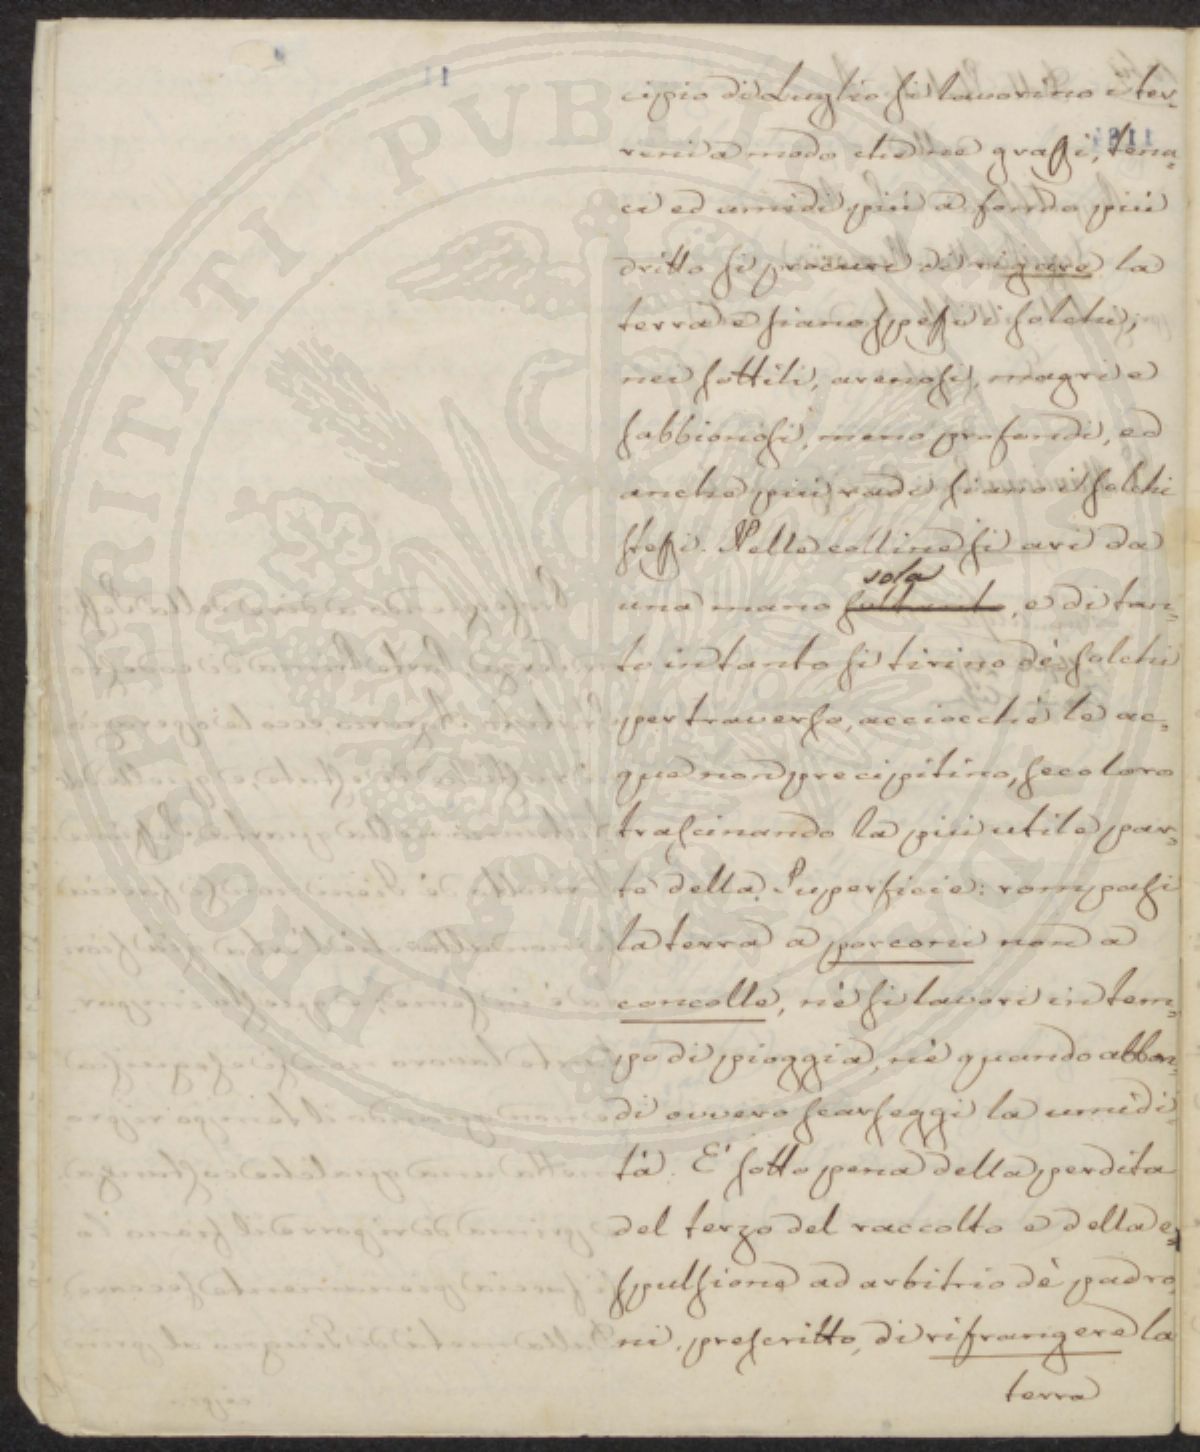 cipio di Luglio si lavorino i ter=
reni a modo che ne grassi, tena=
ci ed umidi più a fondo più
dritto si procuri di rigare la
terra e siano spessi i solchi;
nei sottili, arenosi, magri e
sabbionosi, meno profondi, ed
anche più radi siano i solchi
stessi. Nelle colline si ari da
sola
una mano soltanto, e di tan=
to in tanto si tirino dè solchi
per traverso, acciocchè le ac=
que non precipitino, seco loro
trascinando la più utile par=
te della Superficie: rompasi
la terra a porconi non a
concolle, nè si lavori in tem=
po di pioggia, nè quando abbon=
di ovvero scarseggi la umidi=
tà. E' sotto pena della perdita
del terzo del raccolto e della e=
spulsione ad arbitrio dè padro=
ni, prescritto, di rifrangere la
terra
PROSPERITATI PUBLICAE